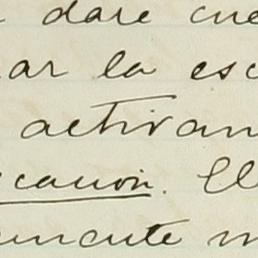 dare cue
ar la esc
activan
cación. El
mente m